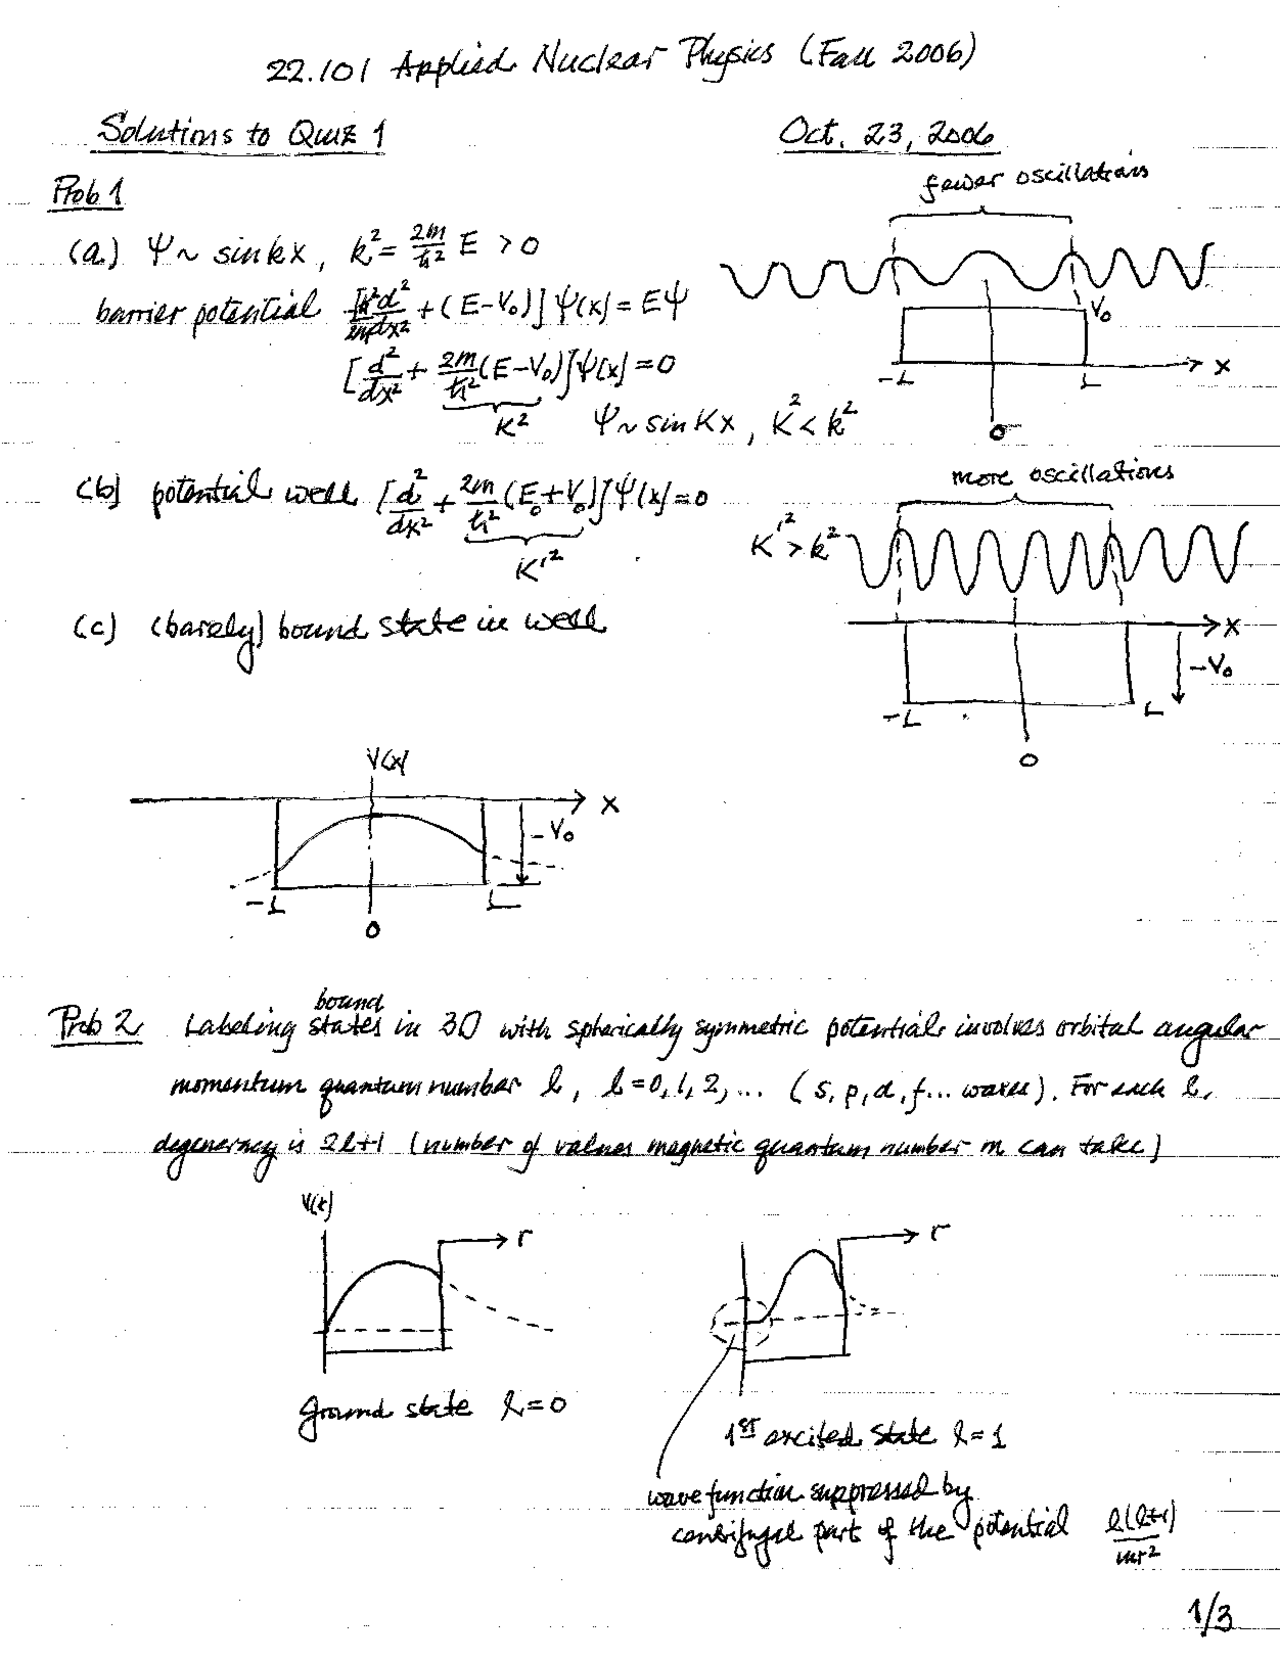 22.101 Applied Nuclear Physics (Fall 2006)
Solutions to Quiz 1
Oct. 23, 2006
fewer oscillations
Prob 1
(a) Ψ ~ sin kx, k² = 2m/ħ² E > 0
barrier potential [ħ²d²/2mdx² + (E-V₀)] Ψ(x) = EΨ
V₀
[d²/dx² + 2m/ħ² (E-V₀)] Ψ(x) = 0
-L L x
K² Ψ ~ sin Kx, K² < k²
0
more oscillations
(b) potential well [d²/dx² + 2m/ħ² (E₀+V₀)] Ψ(x) = 0
K'²
K'² > k²
(c) (barely) bound state in well
x
-V₀
-L L
0
V(x)
x
-V₀
-L L
0
Prob 2 Labeling bound states in 3D with spherically symmetric potentials involves orbital angular
momentum quantum number l, l = 0, 1, 2, ... (s, p, d, f... waves). For each l,
degeneracy is 2l+1 (number of values magnetic quantum number m can take)
V(r)
r
r
ground state l = 0
1st excited state l = 1
wave function suppressed by
centrifugal part of the potential l(l+1)/mr²
1/3